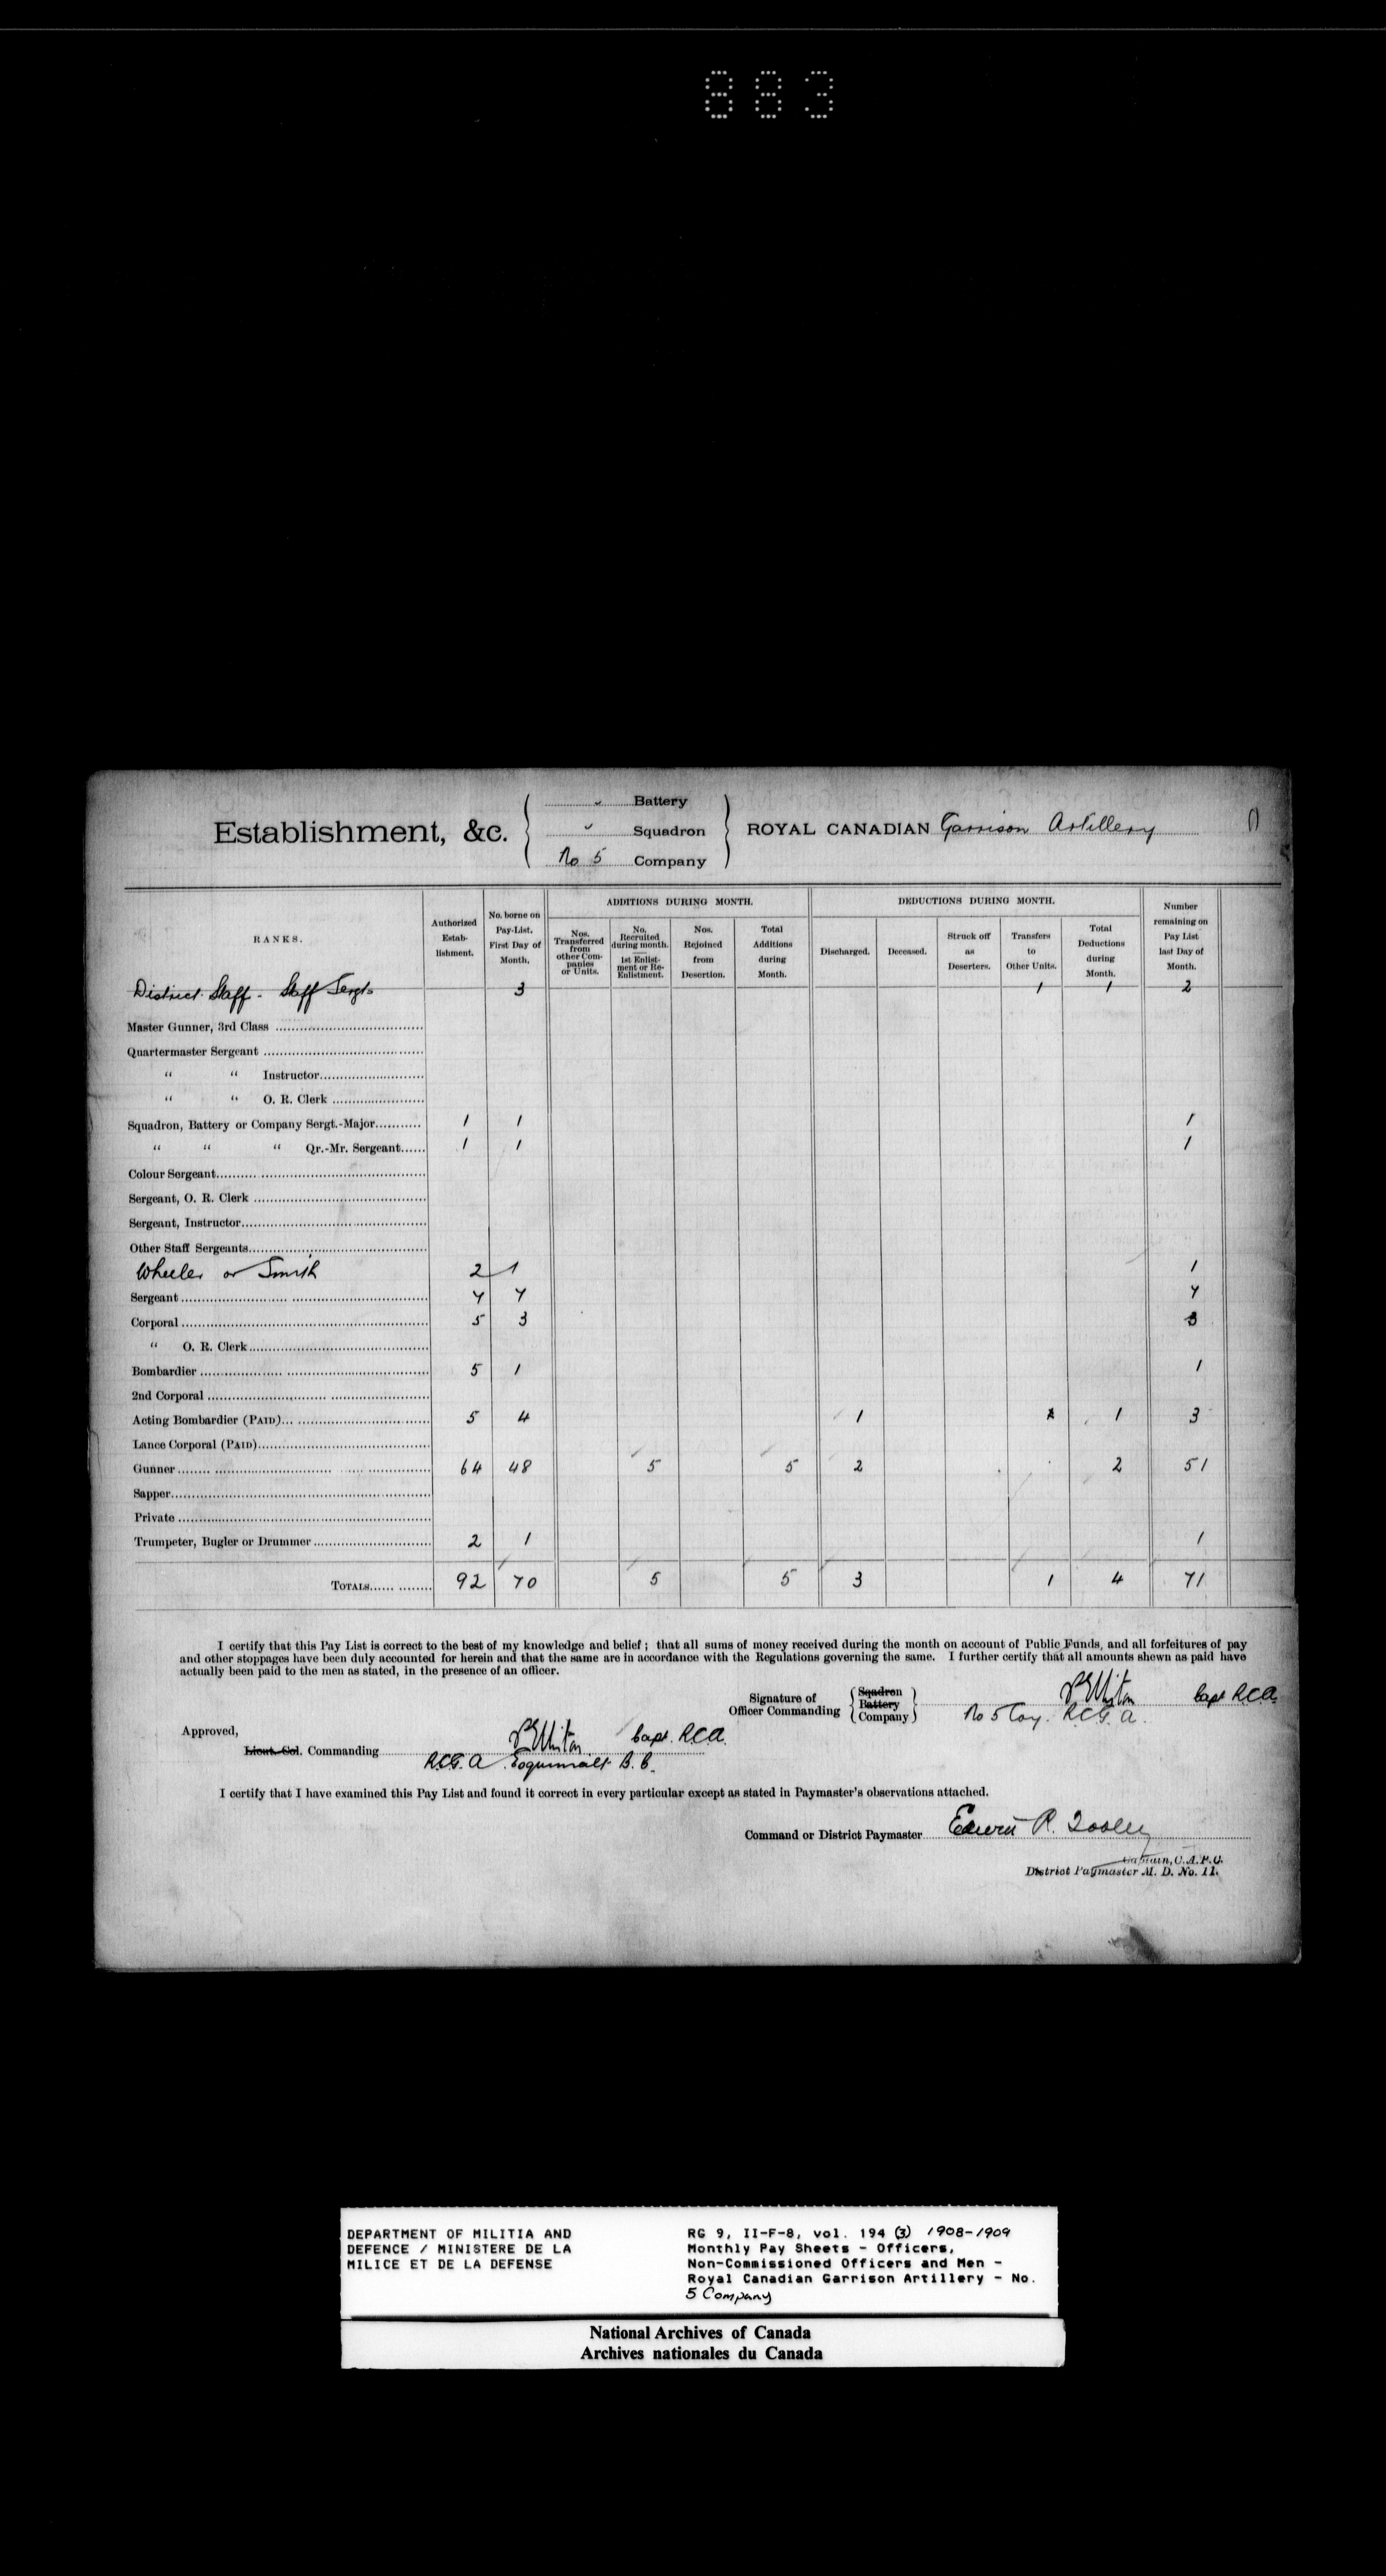 883
Establishment, &c.
Battery
Squadron
No 5 Company
ROYAL CANADIAN Garrison Artillery
RANKS.
Authorized Estab- lishment.
No. borne on Pay-List. First Day of Month.
ADDITIONS DURING MONTH.
Nos. Transferred from other Com- panies or Units.
No. Recruited during month. 1st Enlist- ment or Re- Enlistment.
Nos. Rejoined from Desertion.
Total Additions during Month.
DEDUCTIONS DURING MONTH.
Discharged.
Deceased.
Struck off as Deserters.
Transfers to Other Units.
Total Deductions during Month.
Number remaining on Pay List last Day of Month.
District Staff - Staff Sergts 3 1 1 2
Master Gunner, 3rd Class
Quartermaster Sergeant
" " Instructor
" " O. R. Clerk
Squadron, Battery or Company Sergt.-Major 1 1 1
" " " Qr.-Mr. Sergeant 1 1 1
Colour Sergeant
Sergeant, O. R. Clerk
Sergeant, Instructor
Other Staff Sergeants
Wheeler or Smith 2 1 1
Sergeant 7 7 7
Corporal 5 3 3
" O. R. Clerk
Bombardier 5 1 1
2nd Corporal
Acting Bombardier (PAID) 5 4 1 1 3
Lance Corporal (PAID)
Gunner 64 48 5 5 2 2 51
Sapper
Private
Trumpeter, Bugler or Drummer 2 1 1
TOTALS 92 70 5 5 3 1 4 71
I certify that this Pay List is correct to the best of my knowledge and belief; that all sums of money received during the month on account of Public Funds, and all forfeitures of pay
and other stoppages have been duly accounted for herein and that the same are in accordance with the Regulations governing the same. I further certify that all amounts shewn as paid have
actually been paid to the men as stated, in the presence of an officer.
Signature of Officer Commanding
Sqadron
Battery
Company
Capt R.C.A.
No 5 Coy. R.C.G.A.
Approved,
Lieut.-Col. Commanding
Capt. R.C.A.
R.C.G.A. Esquimalt B.C.
I certify that I have examined this Pay List and found it correct in every particular except as stated in Paymaster's observations attached.
Command or District Paymaster
Captain, C.A.P.C.
District Paymaster M. D. No. 11.
DEPARTMENT OF MILITIA AND
DEFENCE / MINISTERE DE LA
MILICE ET DE LA DEFENSE
RG 9, II-F-8, vol. 194 (3) 1908-1909
Monthly Pay Sheets - Officers,
Non-Commissioned Officers and Men -
Royal Canadian Garrison Artillery - No.
5 Company
National Archives of Canada
Archives nationales du Canada